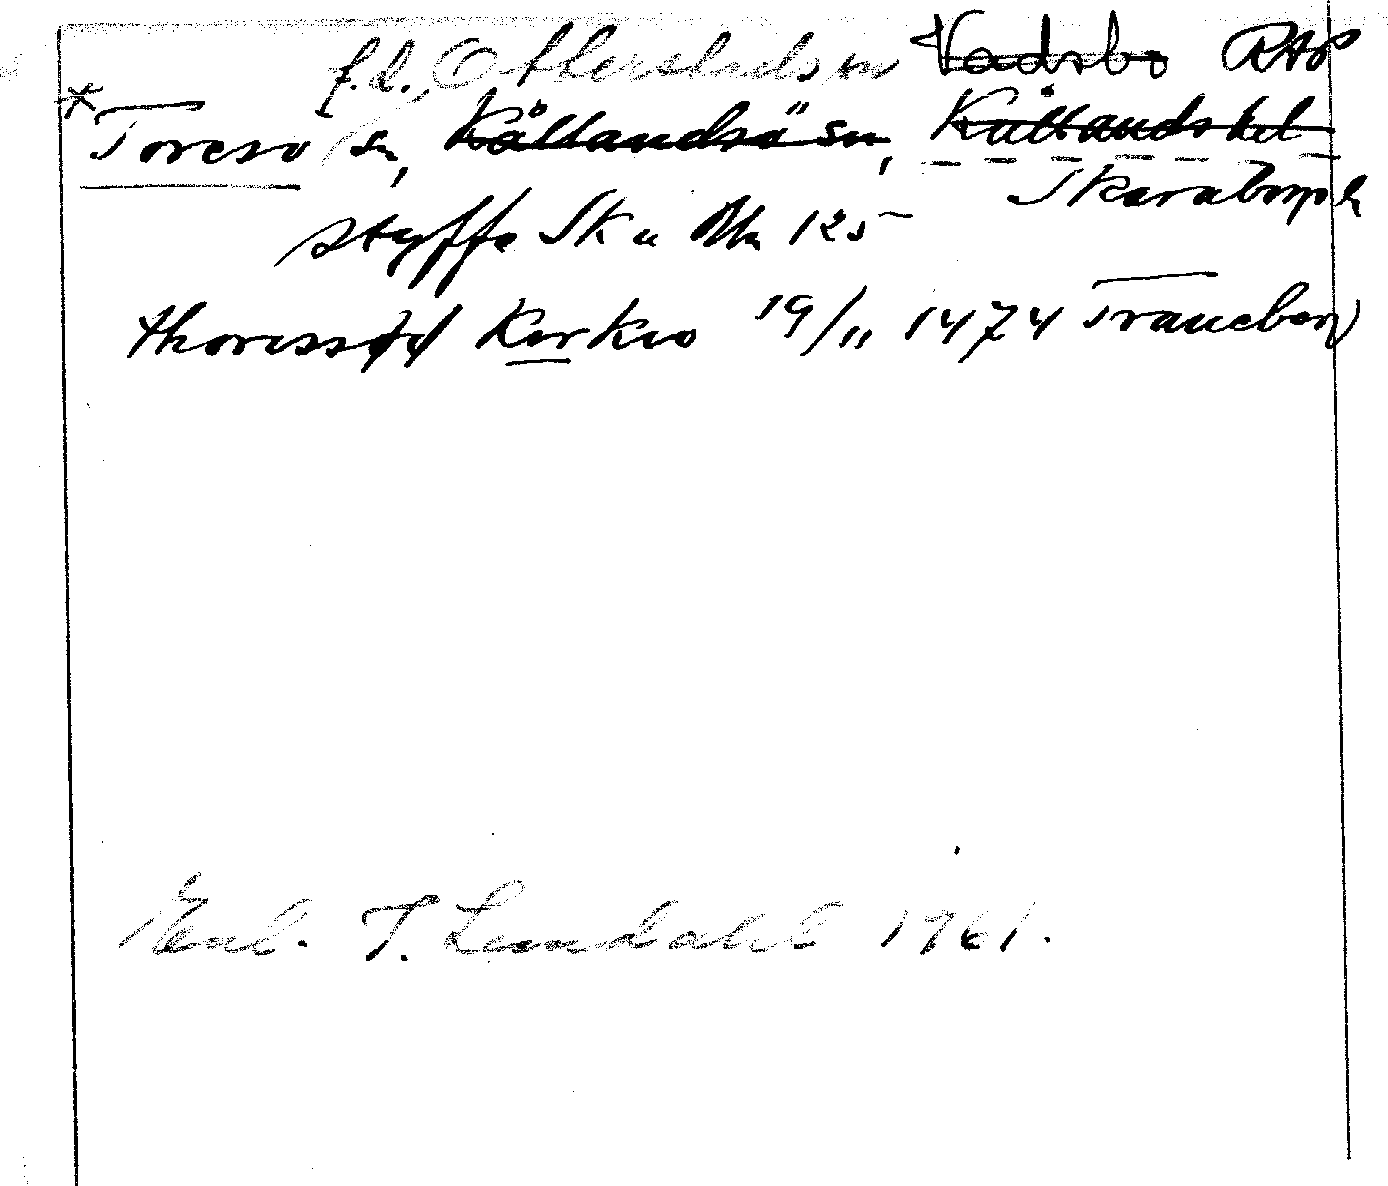 f.d., Otterstads sn Vadsbo RAP
* Toresø sn, Kållandsö sn, Kållands hd
Skaraborgs l
Styffe Sk u Un 125
thoressø Kerkio 19/11 1474 Traneberg
Enl. I. Lundahl 1961.